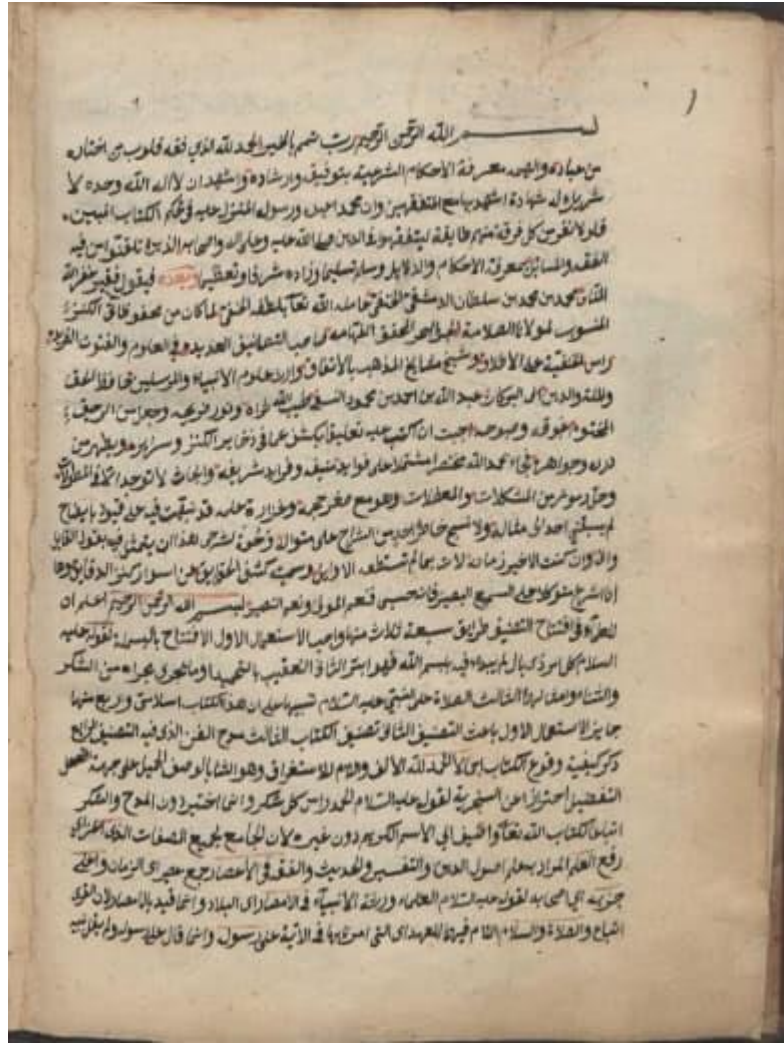 ١
بسم الله الرحمن الرحيم رب تمم بالخير الحمد لله الذي فقه قلوب من اختاره
من عباده والهمه معرفة الاحكام الشرعية بتوفيقه وارشاده واشهد ان لا اله الا الله وحده لا
شريك له شهادة اشهد بها مع المتفقهين وان محمدا عبده ورسوله المنزل عليه في محكم الكتاب المبين
فلولا نفر من كل فرقة منهم طايفة ليتفقهوا في الدين صلى الله عليه وعلى اله واصحابه الذين
الفقه والمسائل لمعرفة الاحكام والدلايل وسلم تسليما وزاده شرفا وتعظيما وبعد فيقول فقير عفو الله
محمد بن محمد بن سلطان الدمشقي الحنفي عامله الله تعا بلطفه الخفي لما كان من الكنز
المنسوب لمولانا العلامة البحر المحقق الفهامه صاحب التصانيف العديده في العلوم والفنون
راس الحنفية على الاطلاق وشيخ مشايخ المذهب بالاتفاق وارث علوم الانبياء والمرسلين حافظ الحق
والملة والدين ابى البركات عبد الله بن احمد بن محمود النسفي طيب الله ثراه ونور ضريحه من الرحيق
المختوم غبوقه وصبوحه احببت ان اكتب عليه تعليقا يكشف عما في ذخاير الكنز وسرايره ويظهر من
درره وجواهره فجاء بحمد الله مختصرا مشتملا على فوايد منيفه وفرايد شريفه وابحاث لا توجد في المطولات
من المشكلات والمعضلات وهو مع صغر حجمه وغزارة علمه قد فيه على قيود بايضاح
لم يسبقني احد الى مثاله ولا نسج خاطر احد من الشراح على منواله لشرحي هذا ان يتمثل فيه بقول القايل
واني وان كنت الاخير زمانه لات بما لم تستطعه الاوايل وسميته كشف الحقايق عن اسرار كنز الدقايق وها
انا اشرع متوكلا على السميع البصير فانه حسبي فنعم المولى ونعم النصير بسم الله الرحمن الرحيم اعلم ان
في افتتاح التصنيف طرايق سبعة ثلاث منها واجب الاستعمال الاول الافتتاح بالبسملة لقوله عليه
السلام كل امر ذي بال لم يبدا فيه ببسم الله فهو ابتر الثاني التعقيب بالتحميد او ما يجري مجراه من الشكر
والثنا الثالث الصلاة على النبي عليه السلام تنبيها على ان هذا الكتاب اسلامي واربع منها
جايز الاستعمال الاول باعث التصنيف الثاني تصنيف الكتاب الثالث مدح الفن الذي فيه التصنيف الرابع
ذكر كيفية وقوع الكتاب الحمد لله الالف واللام للاستغراق وهو الثنا بالوصف الجميل على جهة
التفضيل احترازا عن السخرية لقوله عليه السلام الحمد راس كل شكر وانما اختير دون المدح والشكر
اتباعا لكتاب الله تعا واضيف الى الاسم الكريم دون غيره لانه الجامع لجميع الصفات الذي
رفع العلم المراد به علم اصول الدين والتفسير والحديث والفقه في الاعصار جمع عصر اى الزمان واعلى
حزبه اي لقوله عليه السلام العلماء ورثة الانبياء في الامصار اى البلاد وانما قيد بالامصار لان القرى
اتباع والصلاة والسلام اللام فيهما للعهد اى التي امر بها في الاية على رسوله وانما قال على رسوله ولم يقل نبيه